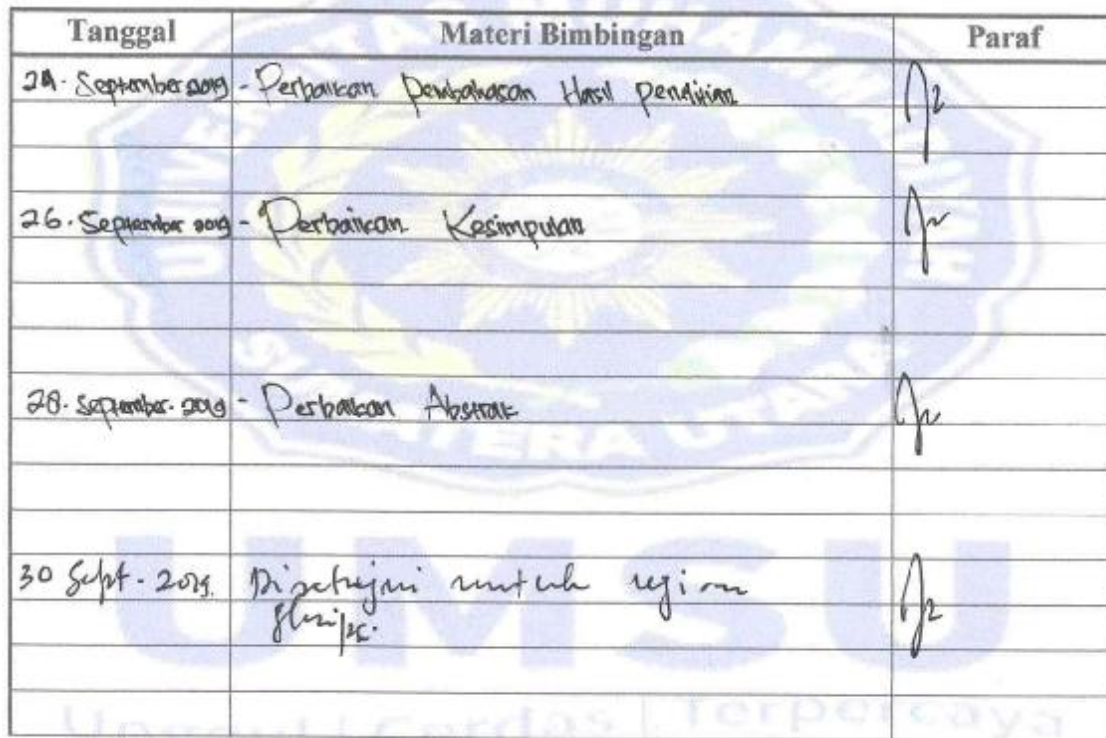 Tanggal Materi Bimbingan Paraf
24. September 2019 - Perbaikan Pembahasan Hasil Penelitian
26. September 2019 - Perbaikan Kesimpulan
28. September. 2019 - Perbaikan Abstrak
30 Sept. 2019. Disetujui untuk
Skripsi.
UNIVERSITAS MUHAMMADIYAH
SUMATERA UTARA
UMSU
Unggul | Cerdas | Terpercaya